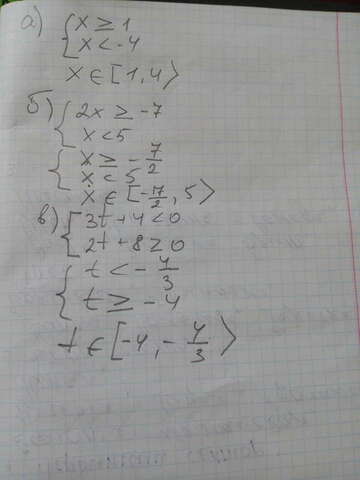 а) { x ≥ 1
x < -4
x ∈ [1, 4⟩
б) { 2x ≥ -7
x < 5
{ x ≥ -7/2
x < 5
x ∈ [-7/2, 5⟩
в) { 3t + 4 < 0
2t + 8 ≥ 0
{ t < -4/3
t ≥ -4
t ∈ [-4, -4/3⟩